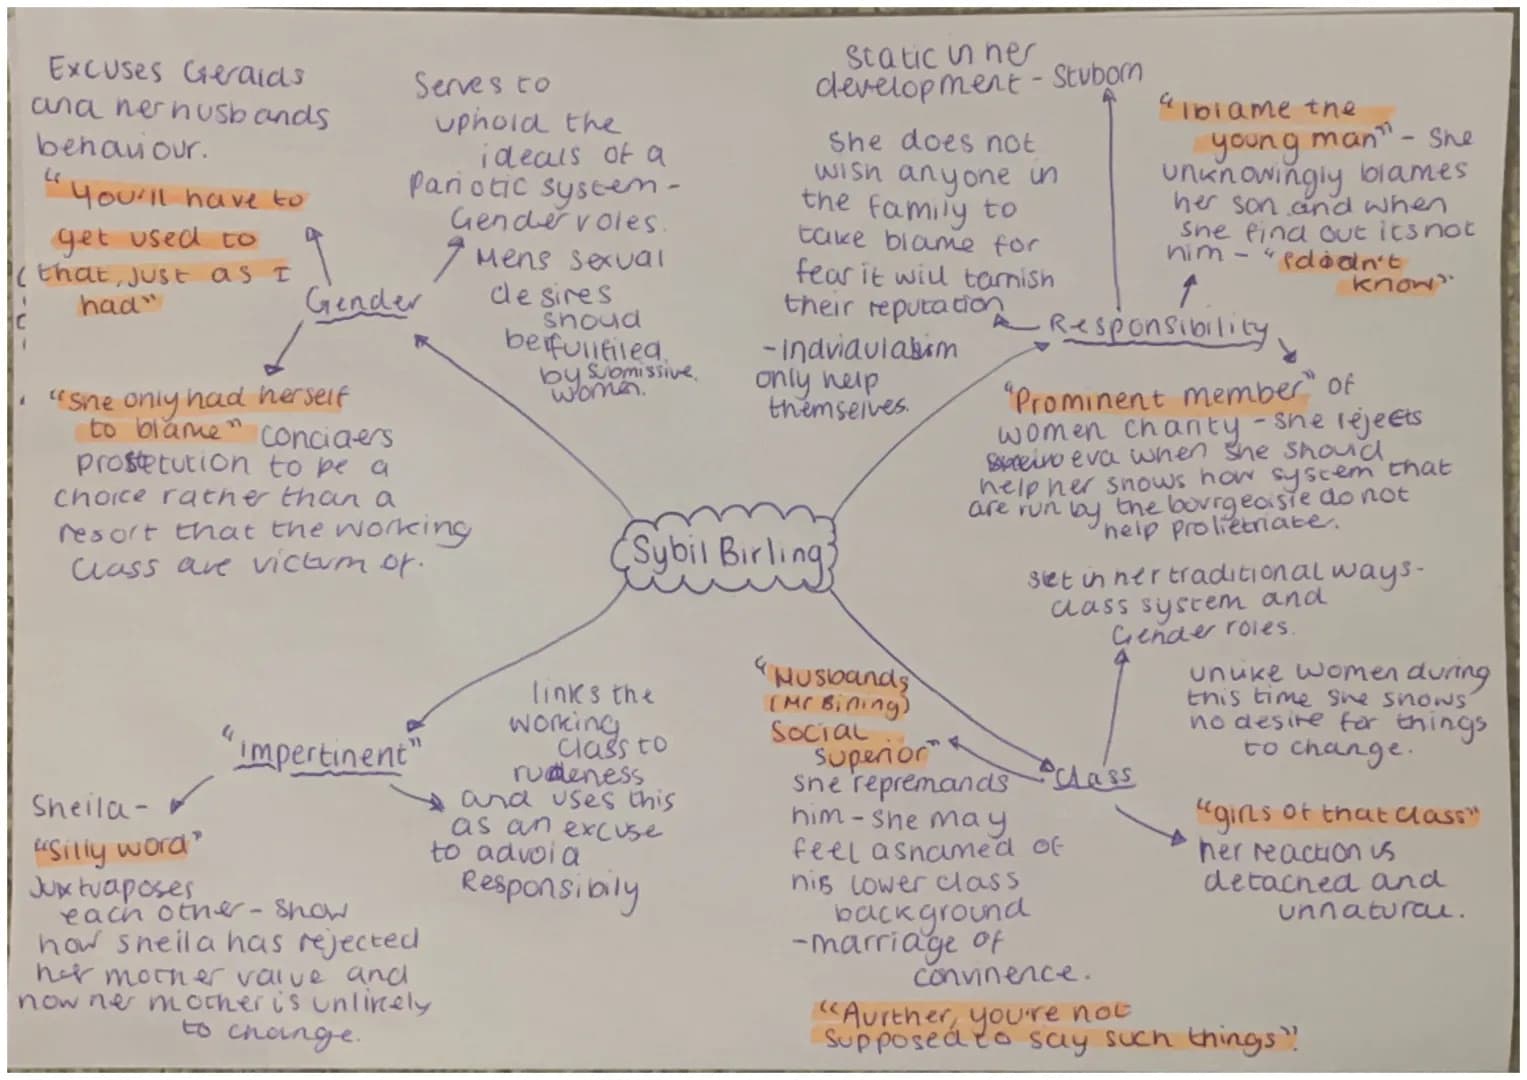 Excuses Geralds
and her husbands
behaviour.
"You'll have to
get used to
that, just as I
had"
Serves to
uphold the
ideals of a
Pariotic system -
Gender roles.
Mens sexual
desires
shoud
be fullfiled
by submissive
women.
Gender
"She only had herself
to blame" conciders
prostetution to be a
choice rather than a
resort that the working
class are victum of.
Static in her
development - Stuborn
She does not
wish anyone in
the family to
take blame for
fear it will tarnish
their reputation
- Indviaulabism
only help
themselves.
"I blame the
young man" - She
unknowingly blames
her son and when
she find out its not
him - "I didn't
know"
Responsibility
"Prominent member" of
women charity - she rejects
eva when she should
help her shows how system that
are run by the bourgeoisie do not
help prolietriate.
Sybil Birling
"impertinent"
Sheila -
"Silly word"
Juxtuaposes
each other - show
how sheila has rejected
her mother value and
how her mother is unlikely
to change.
links the
working
class to
rudeness
and uses this
as an excuse
to advoid
Responsibily
Set in her traditional ways -
class system and
Gender roles.
unlike women during
this time she shows
no desire for things
to change.
Class
"Husbands
(Mr Birling)
Social
superior"
she repremands
him - she may
feel ashamed of
his lower class
background
- marriage of
convinence.
"Aurther, you're not
supposed to say such things"!
"girls of that class"
her reaction is
detached and
unnatural.